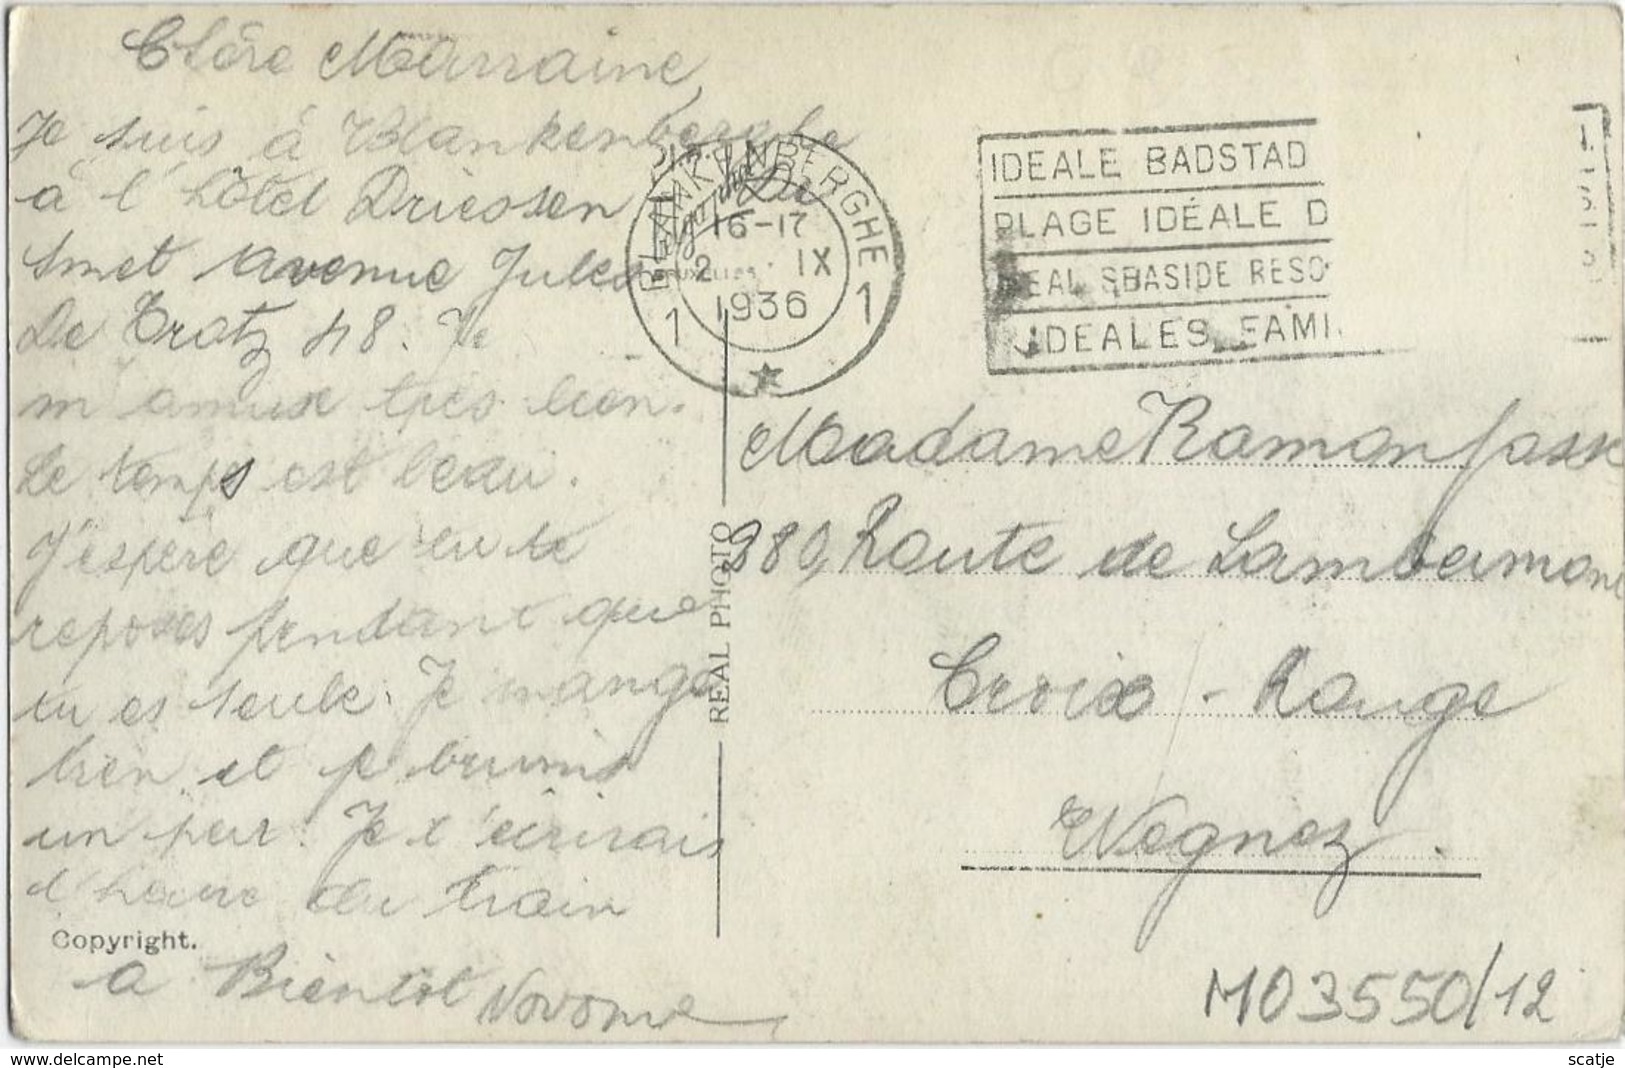 Chère Marraine,
Je suis à Blankenberghe
à l'hôtel Driessen De
Smet Avenue Jules
De Trotz 48. Je
m'amuse très bien.
Le temps est beau.
J'espère que tu te
reposes pendant que
tu es seule. Je mange
bien et je brunis
un peu. Je t'écrirais
l'heure du train
Copyright.
à Bientôt
BLANKENBERGHE
16-17
2 IX
1936
1 1
IDEALE BADSTAD
PLAGE IDÉALE D
EAL SEASIDE RESO
IDEALES FAMI
REAL PHOTO
Madame Raman
380, Route de Lambermont
Croix-Rouge
Wegnez.
M03550/12
www.delcampe.net
scatje